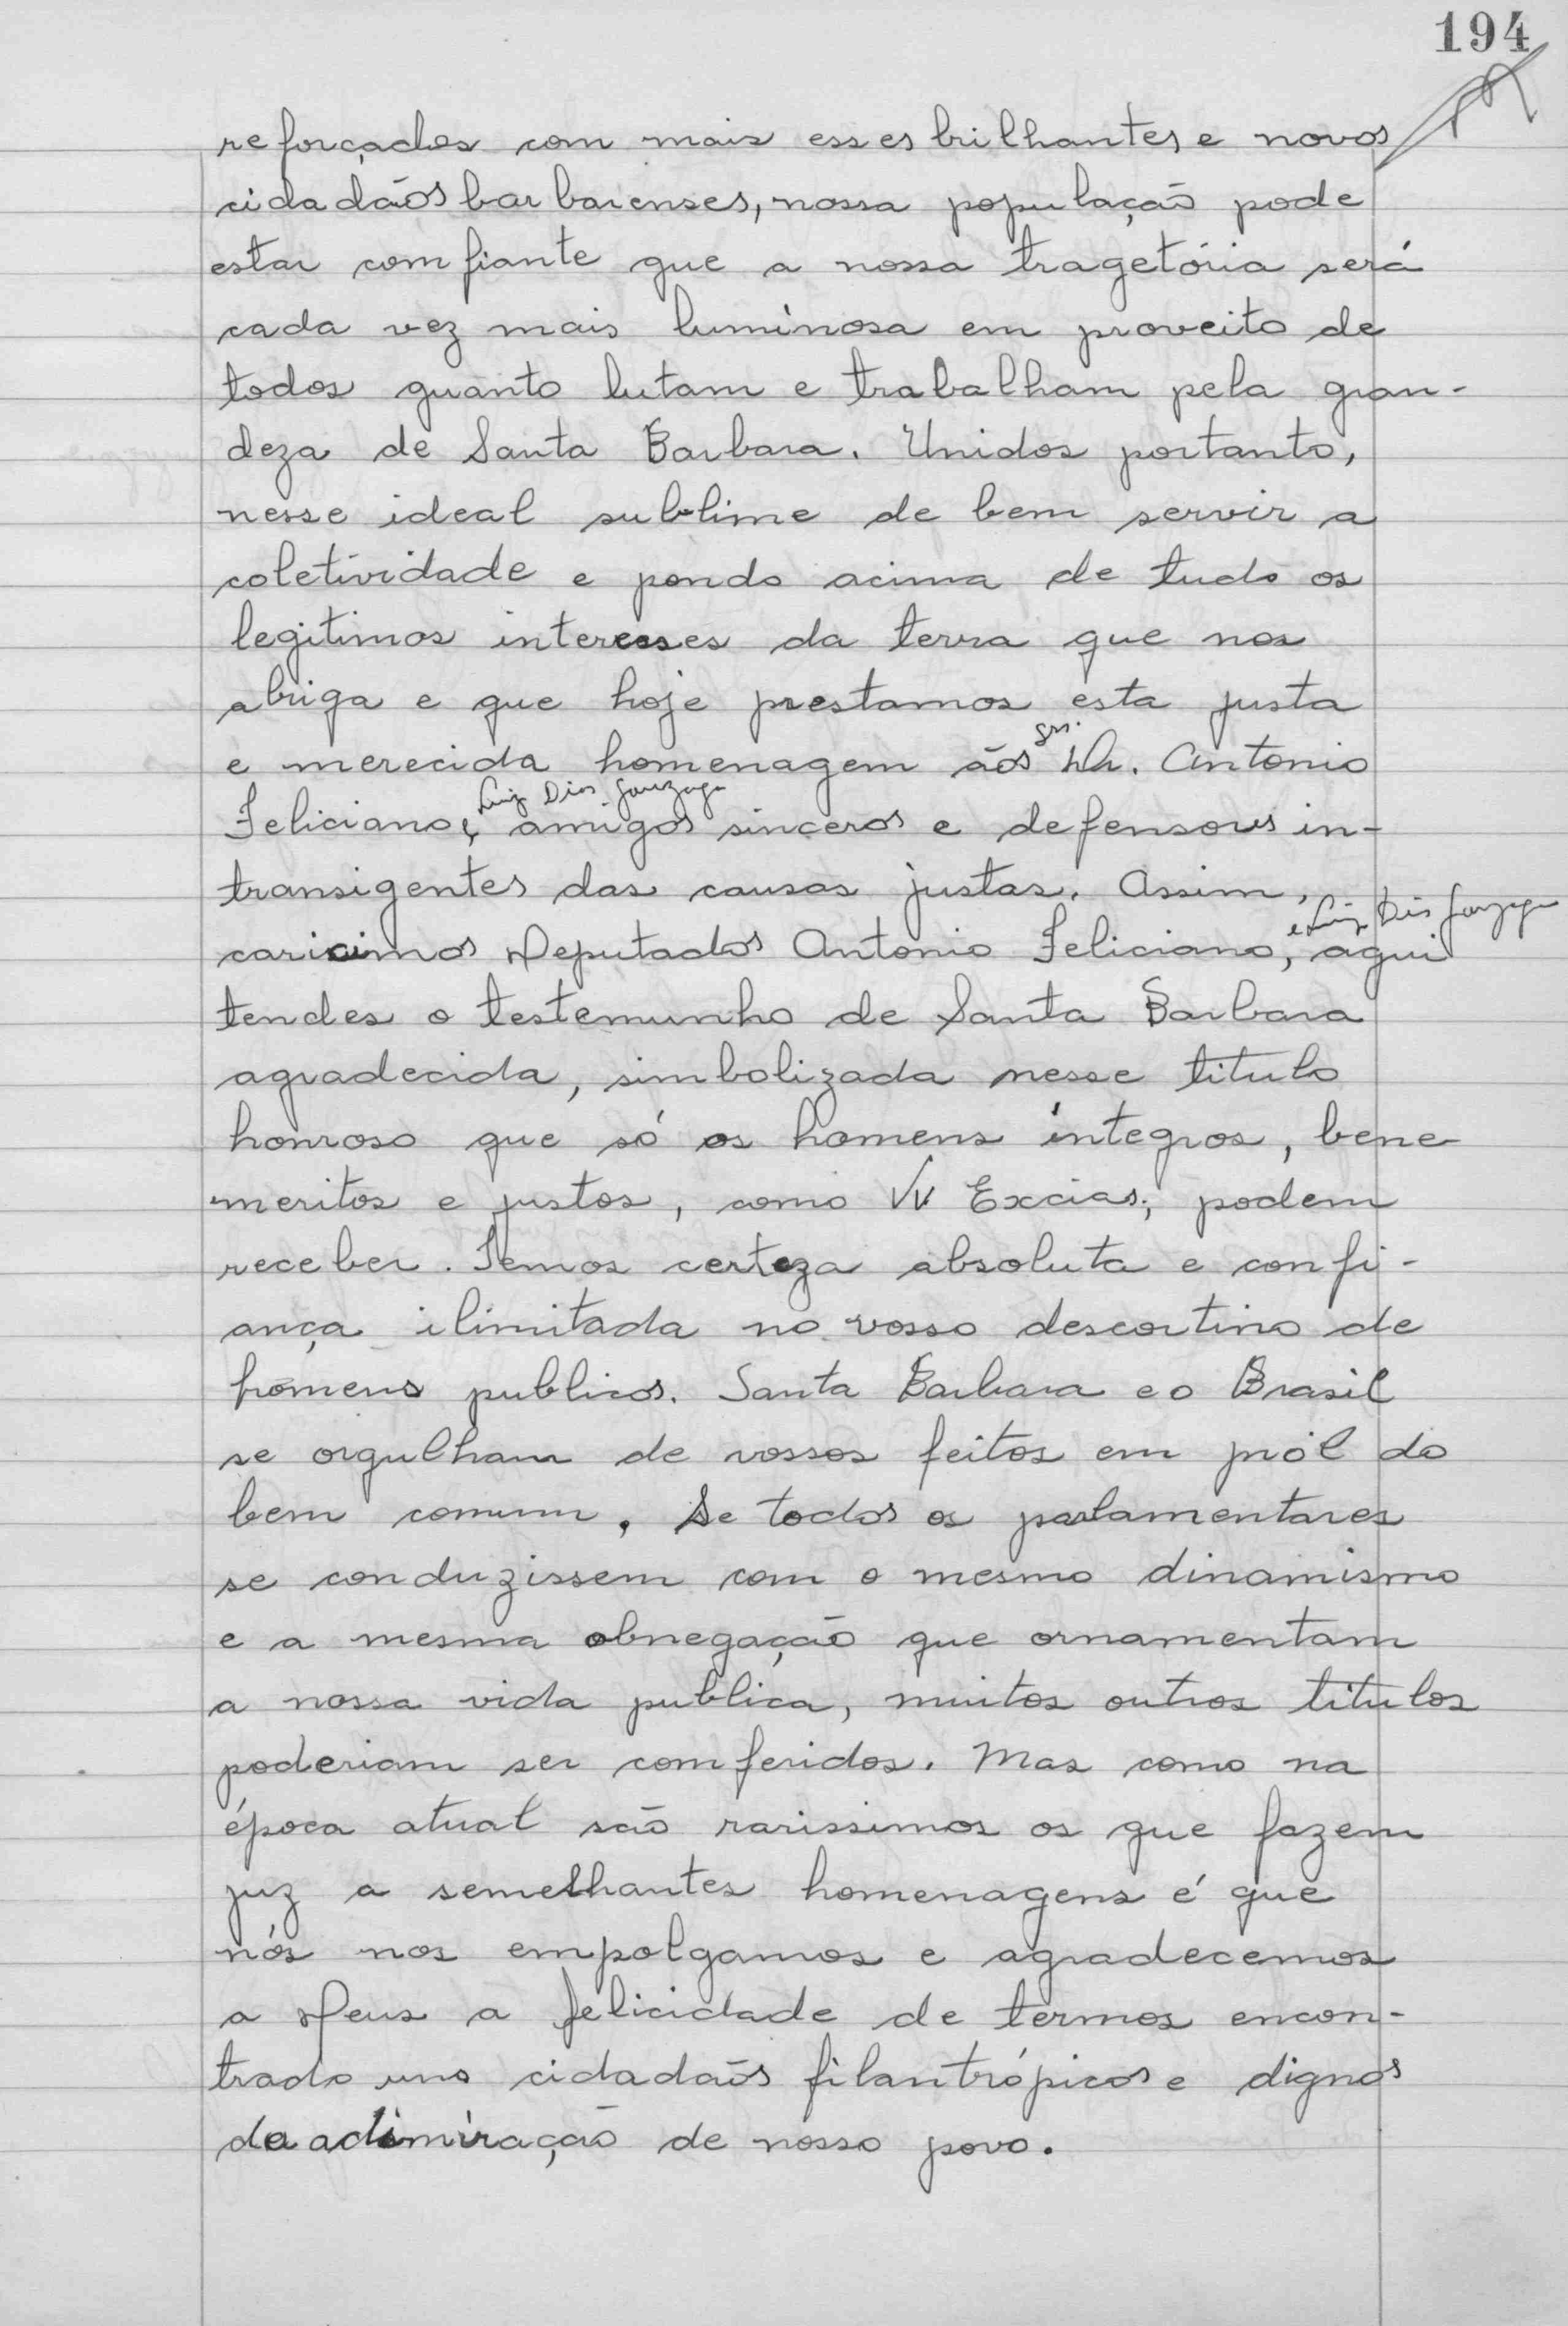 194
reforçados com mais esses brilhantes e novos
cidadãos barbarenses, nossa população pode
estar comfiante que a nossa tragetória será
cada vez mais luminosa em proveito de
todos quanto lutam e trabalham pela gran-
deza de Santa Barbara. Unidos portanto,
nesse ideal sublime de bem servir a
coletividade e pondo acima de tudo os
legitimos interesses da terra que nos
abriga e que hoje prestamos esta justa
srs.
e merecida homenagem aós Dr. Antonio
Luiz Dias Gonzaga
Feliciano e, amigos sinceros e defensores in-
transigentes das causas justas. Assim,
e Luiz Dias Gonzaga
caricimos Deputados Antonio Feliciano, aqui
tendes o testemunho de Santa Barbara
agradecida, simbolizada nesse titulo
honroso que só os homens íntegros, bene
meritos e justos, como VV Excias; podem
receber. Temos certeza absoluta e confi-
ança ilimitada no vosso descortino de
homens publicos. Santa Barbara e o Brasil
se orgulham de vossos feitos em pról do
bem comum. Se todos os parlamentares
se conduzissem com o mesmo dinamismo
e a mesma abnegação que ornamentam
a nossa vida publica, muitos outros titulos
poderiam ser comferidos. Mas como na
época atual são rarissimos os que fazem
juz a semelhantes homenagens é que
nós nos empolgamos e agradecemos
a Deus a felicidade de termos encon-
trado uns cidadãos filantrópicos e dignos
da adimiração de nosso povo.